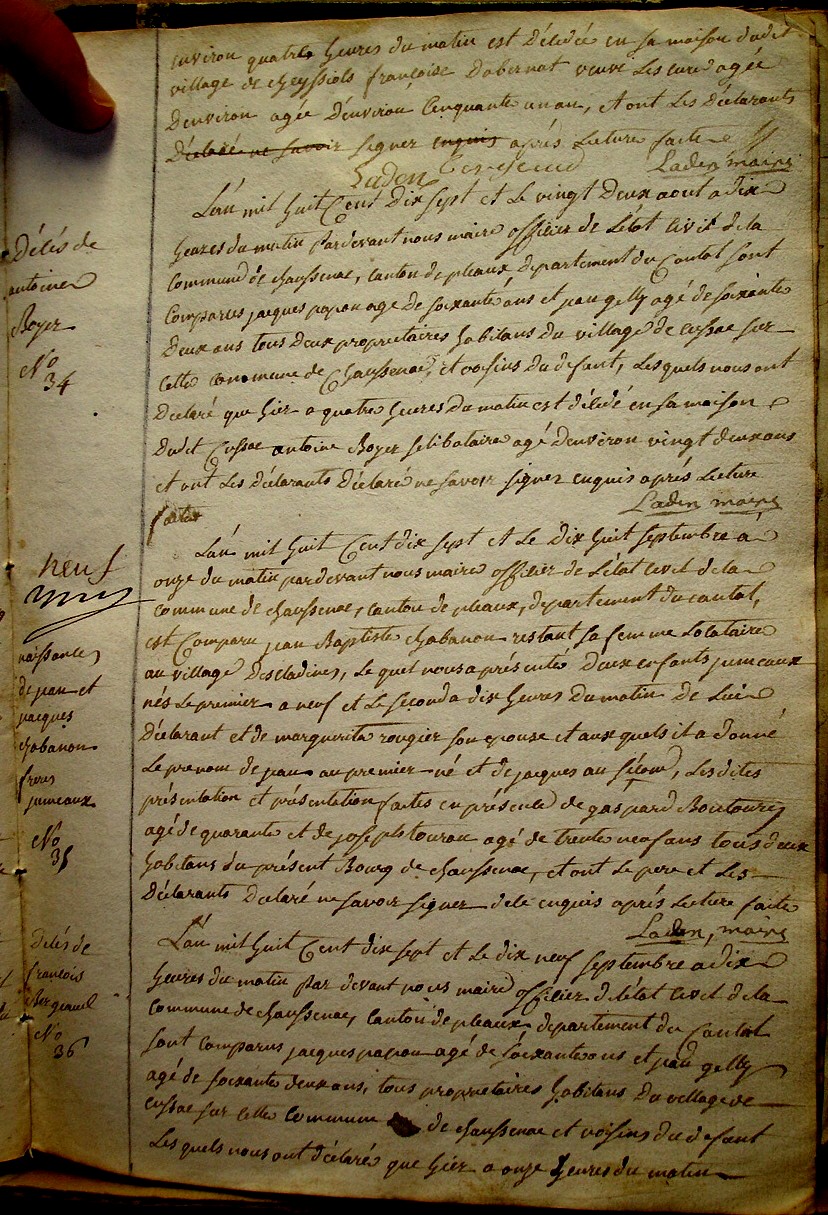 environ quatre heures du matin est décédée en sa maison dudit
village de cheyssiols françoise Dabernat veuve Lescure agée
Denviron agée Denviron Cinquante un an, et ont Les Déclarants
Déclaré ne savoir signer enquis après Lecture faite
Laden Bergeaud Laden maire
Décés de
antoine
Boyer
No
34
L'an mil huit Cent Dix sept et Le vingt Deux aout a dix
heures du matin Pardevant nous maire officier de L'état Civil de la
Commune de chaussenac, canton de pleaux, département du Cantal sont
Comparus jacques papon agé de soixante ans et jean gelly agé de soixante
Deux ans tous Deux proprietaires habitans du village de cussac sur
cette commune de Chaussenac, et voisins du defunt, Lesquels nous ont
Déclaré que hier a quatre heures Du matin est décédé en sa maison
Dudit Cussac antoine Boyer selibataire agé Denviron vingt deux ans
et ont Les Déclarants Déclaré ne savoir signer enquis après Lecture
faite
Laden maire
neuf
naissance
de jean et
jacques
chabanon
freres
jumeaux
No
35
L'an mil huit Cent dix sept et Le dix huit septembre a
onze du matin pardevant nous maire officier de L'état Civil de la
Commune de chaussenac, canton de pleaux, departement du cantal,
est Comparu jean Baptiste chabanon restant sa femme Locataire
au village Descladines, Le quel nous a présenté Deux enfants jumeaux
nés Le premier a neuf et Le second a dix heures Du matin De Lui
Déclarant et de marguerite rougier son epouse et aux quels il a donné
Le prenom de jean au premier né et de jacques au second, Les dites
présentation et présentation faites en présence de gaspard Boutoury
agé de quarante et de joseph touran agé de trente neuf ans tous deux
habitans du présent Bourg de chaussenac, et ont Le pere et Les
Déclarants Déclaré ne savoir signer de ce enquis après Lecture faite
Laden, maire
Décés de
françois
Bergeaud
No
36
L'an mil huit Cent dix sept et Le dix neuf septembre a dix
heures du matin Par devant nous maire officier de l'état Civil de la
Commune de chaussenac, Canton de pleaux, departement du Cantal
sont Comparus jacques papon agé de soixante ans et jean gelly
agé de soixante deux ans, tous proprietaires habitans du village de
cussac sur cette commune de chaussenac et voisins du defunt
Les quels nous ont déclaré que hier a onze heures du matin